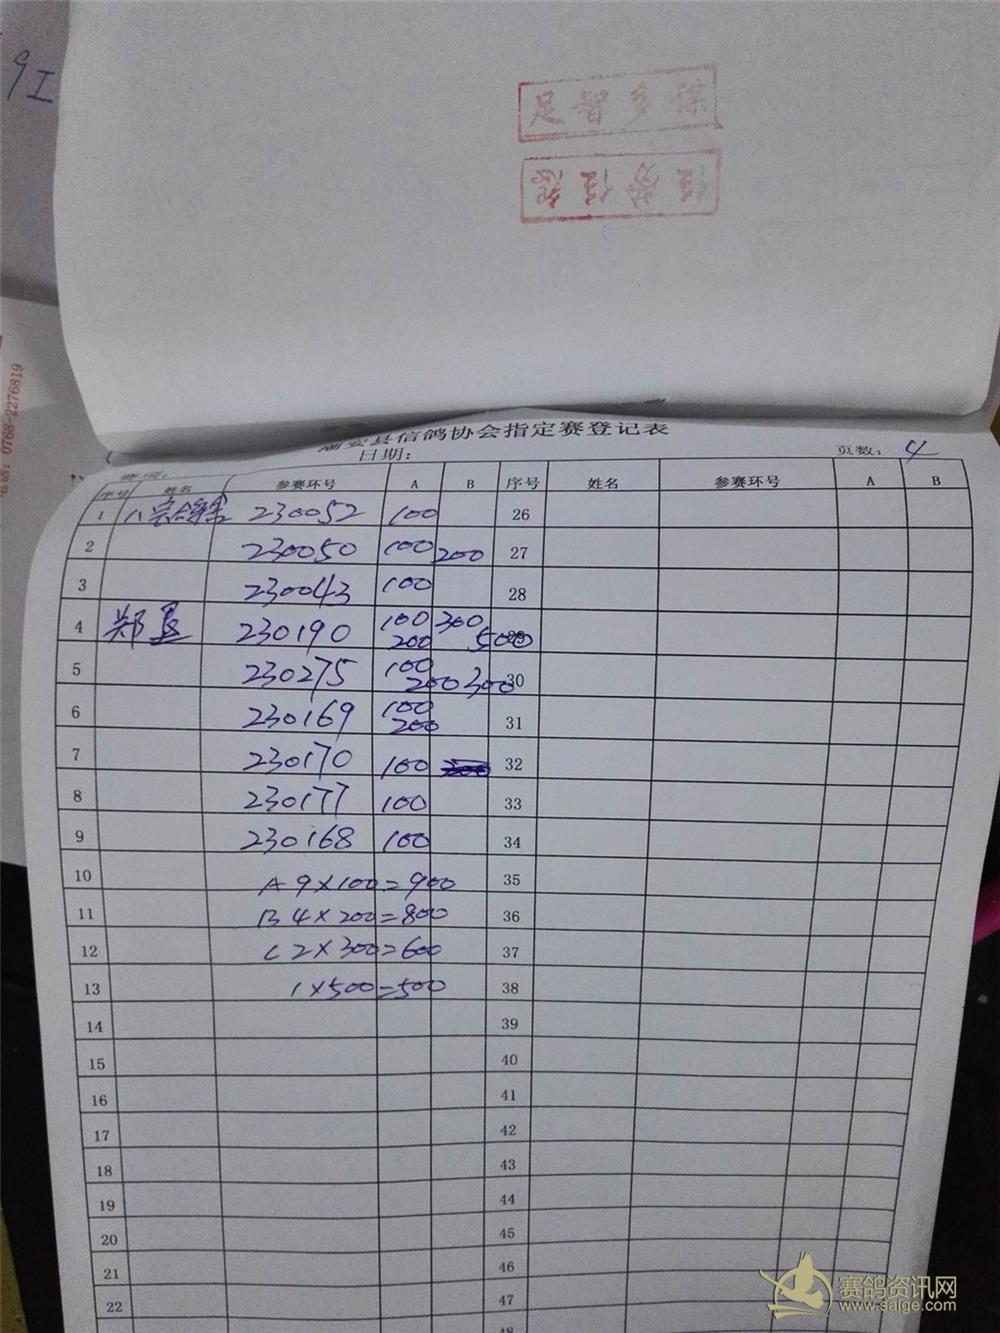 9工
足智多谋
电话: 0768-2276819
潮安县信鸽协会指定赛登记表
赛项: 日期: 页数: 4
序号 姓名 参赛环号 A B 序号 姓名 参赛环号 A B
1 230052 100 26
2 230050 100 200 27
3 230043 100 28
4 郑 230190 100 300 29
200 500
5 230275 100 30
200 300
6 230169 100 31
200
7 230170 100 32
8 230177 100 33
9 230168 100 34
10 A 9×100=900 35
11 B 4×200=800 36
12 C 2×300=600 37
13 1×500=500 38
14 39
15 40
16 41
17 42
18 43
19 44
20 45
21 46
22 47
48
赛鸽资讯网
www.saige.com